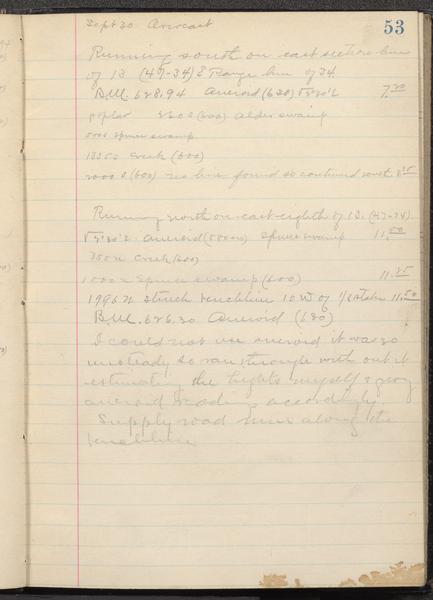 Sept 30 Overcast
53
Running south on east section line
of 13 (47-34) & Range line of 34.
B.M. 628.94 Aneroid (630) 7.30
poplar 230 S (600) alder swamp
500 S spruce swamp
1335 S creek (600)
2000 S (600) no line found so continued west 8.35
Running north on east eighth of 13. (47-34)
aneroid spruce swamp 11.00
750 N creek (600)
1000 N Spruce swamp (600) 11.25
1996 N struck benchline 10 W of 1/8 stake 11.50
B.M. 626.30 Aneroid (630)
I could not use aneroid it was so
unsteady so ran through with out it
estimating the hights myself &
aneroid readings accordingly.
Supply road runs along the
benchline